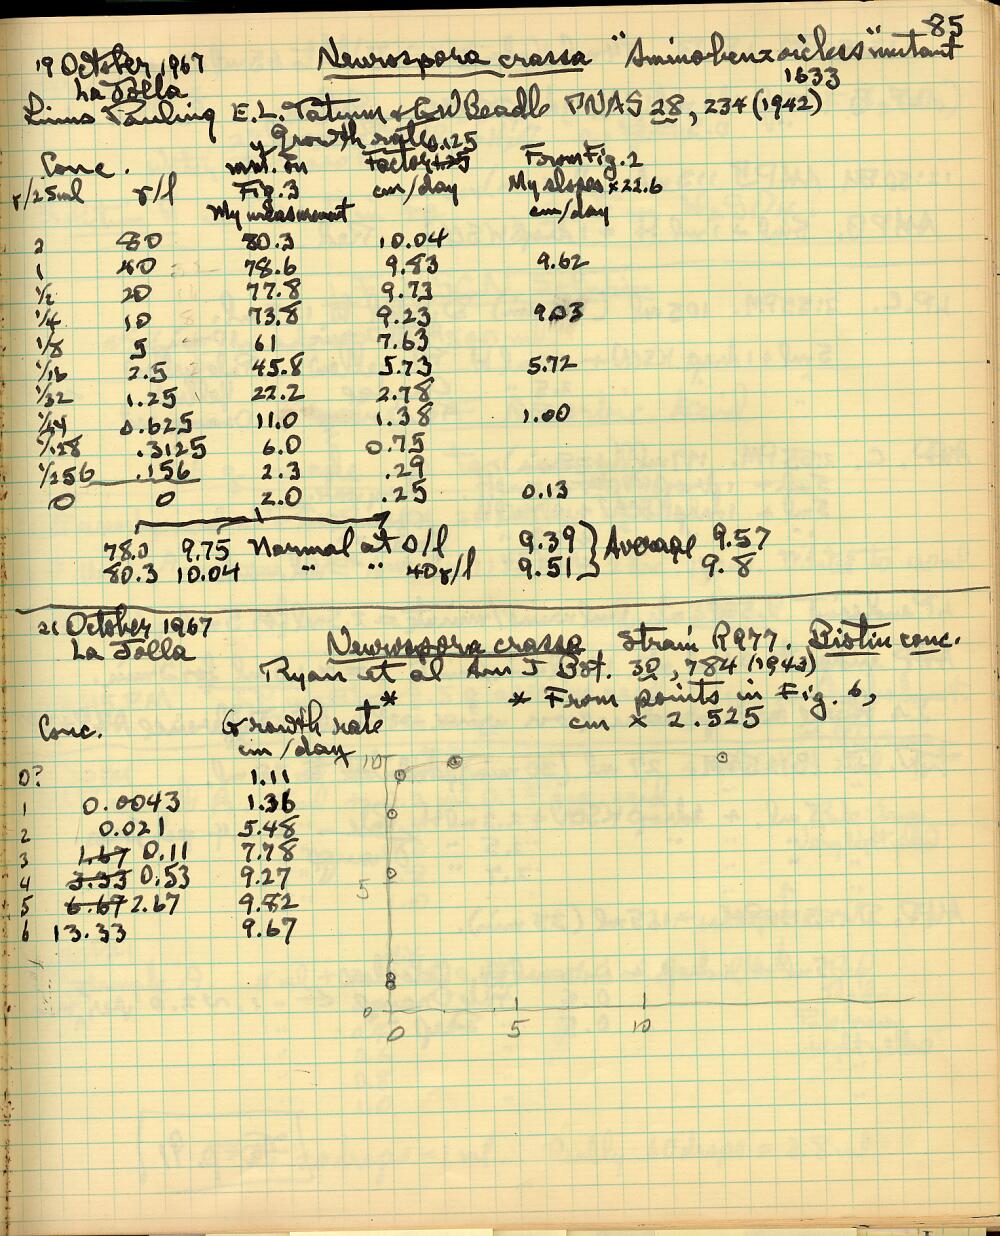 85
19 October 1967 Neurospora crassa "Aminobenzoicless" mutant
La Jolla 1633
Linus Pauling E.L. Tatum & GW Beadle PNAS 28, 234 (1942)
y Growth rate
Conc. mm. in Factor 0.125 From Fig. 2
γ/25ml γ/l Fig. 3 cm/day My slopes × 22.6
My measurement cm/day
2 80 80.3 10.04
1 40 78.6 9.83 9.62
1/2 20 77.8 9.73
1/4 10 73.8 9.23 9.03
1/8 5 61 7.63
1/16 2.5 45.8 5.73 5.72
1/32 1.25 22.2 2.78
1/64 0.625 11.0 1.38 1.00
1/128 .3125 6.0 0.75
1/256 .156 2.3 .29
0 0 2.0 .25 0.13
78.0 9.75 Normal at 0/l 9.39 } Average 9.57
80.3 10.04 " " 40γ/l 9.51 } 9.8
21 October 1967
La Jolla Neurospora crassa Strain R977. Biotin conc.
Ryan et al Am J Bot. 30, 784 (1943)
* From points in Fig. 6,
Conc. Growth rate* cm × 2.525
cm/day
10
0? 1.11
1 0.0043 1.36
2 0.021 5.48
3 1.67 0.11 7.78
4 3.33 0.53 9.27
5
5 6.67 2.67 9.82
6 13.33 9.67
0
0 5 10